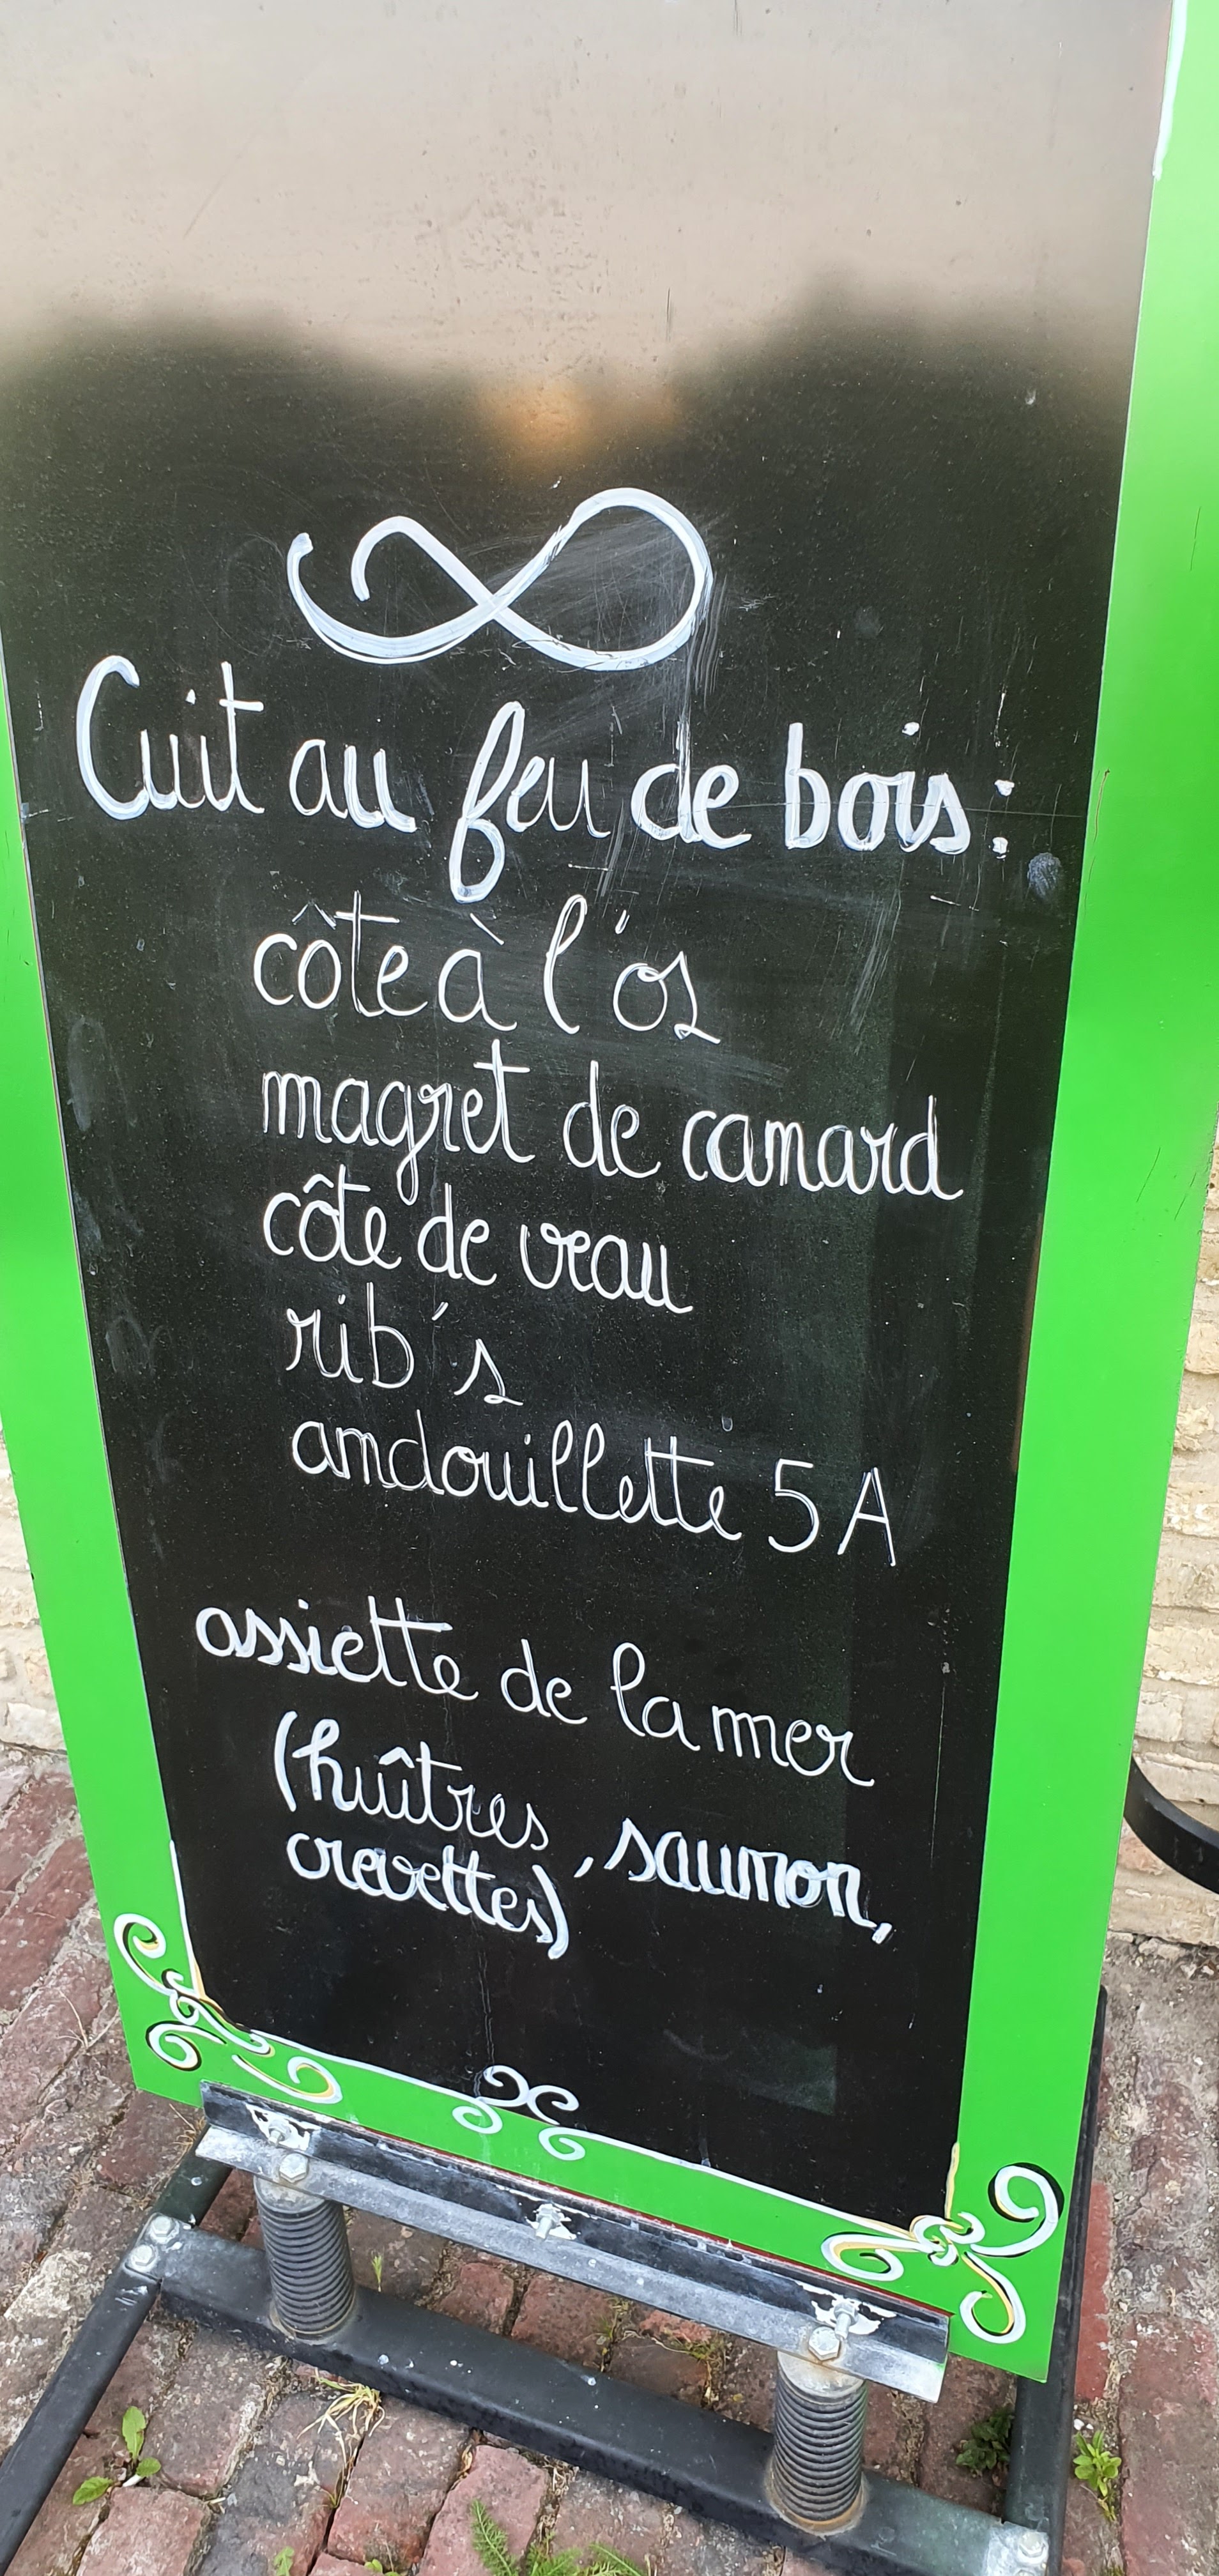 Cuit au feu de bois :
côte à l'os
magret de canard
côte de veau
rib's
andouillette 5A
assiette de la mer
(huîtres, saumon,
crevettes)